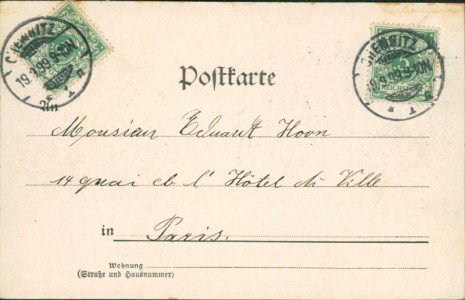 CHEMNITZ
19.3.99.9-10N
CHEMNITZ
19.3.99.9-10N
Postkarte
An
Mousian Eduart Hoon
14 quai cb l' Hôtel di Ville
in Paris.
Wohnung
(Straße und Hausnummer)